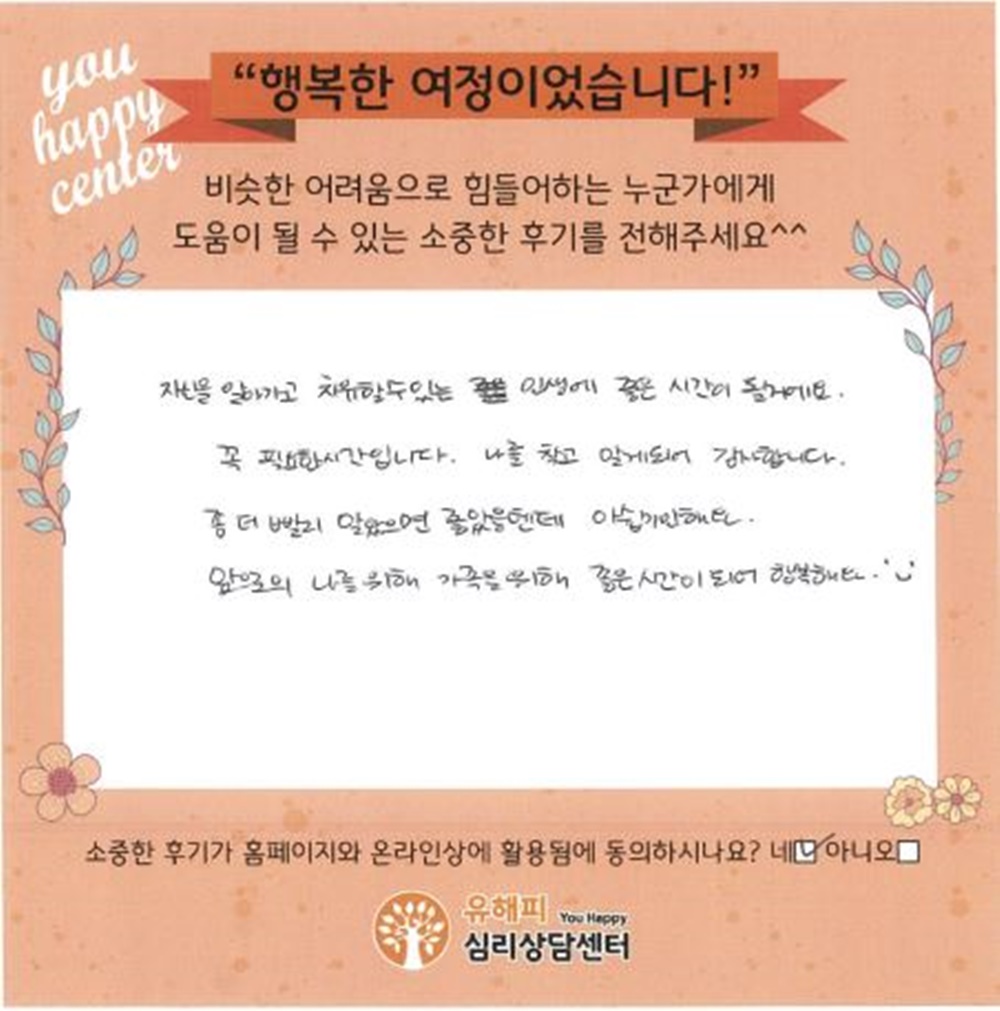 you
happy
center
“행복한 여정이었습니다!”
비슷한 어려움으로 힘들어하는 누군가에게
도움이 될 수 있는 소중한 후기를 전해주세요^^
자신을 알아가고 치유할수있는 인생에 좋은 시간이 될거에요.
꼭 필요한시간입니다. 나를 찾고 알게되어 감사합니다.
좀 더 빨리 알았으면 좋았을텐데 아쉽기만해요.
앞으로의 나를위해 가족을위해 좋은시간이되어 행복해요.
소중한 후기가 홈페이지와 온라인상에 활용됨에 동의하시나요? 네 아니오
유해피 You Happy
심리상담센터